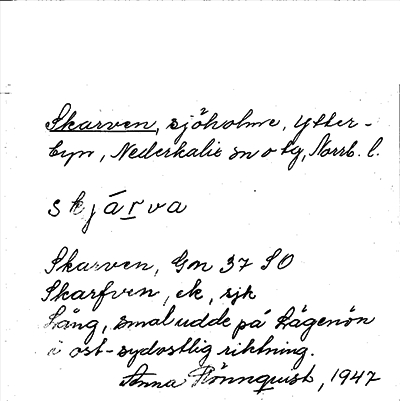 Skarven, sjöholme, Ytter-
byn, Nederkalix sn o tg, Norrb. l.
skjárva
Skarven, Gn 37 SO
Skarfven, ek, sjk
Lång, smal udde på Rågenön
i ost-sydostlig riktning.
Anna Rönnquist, 1947